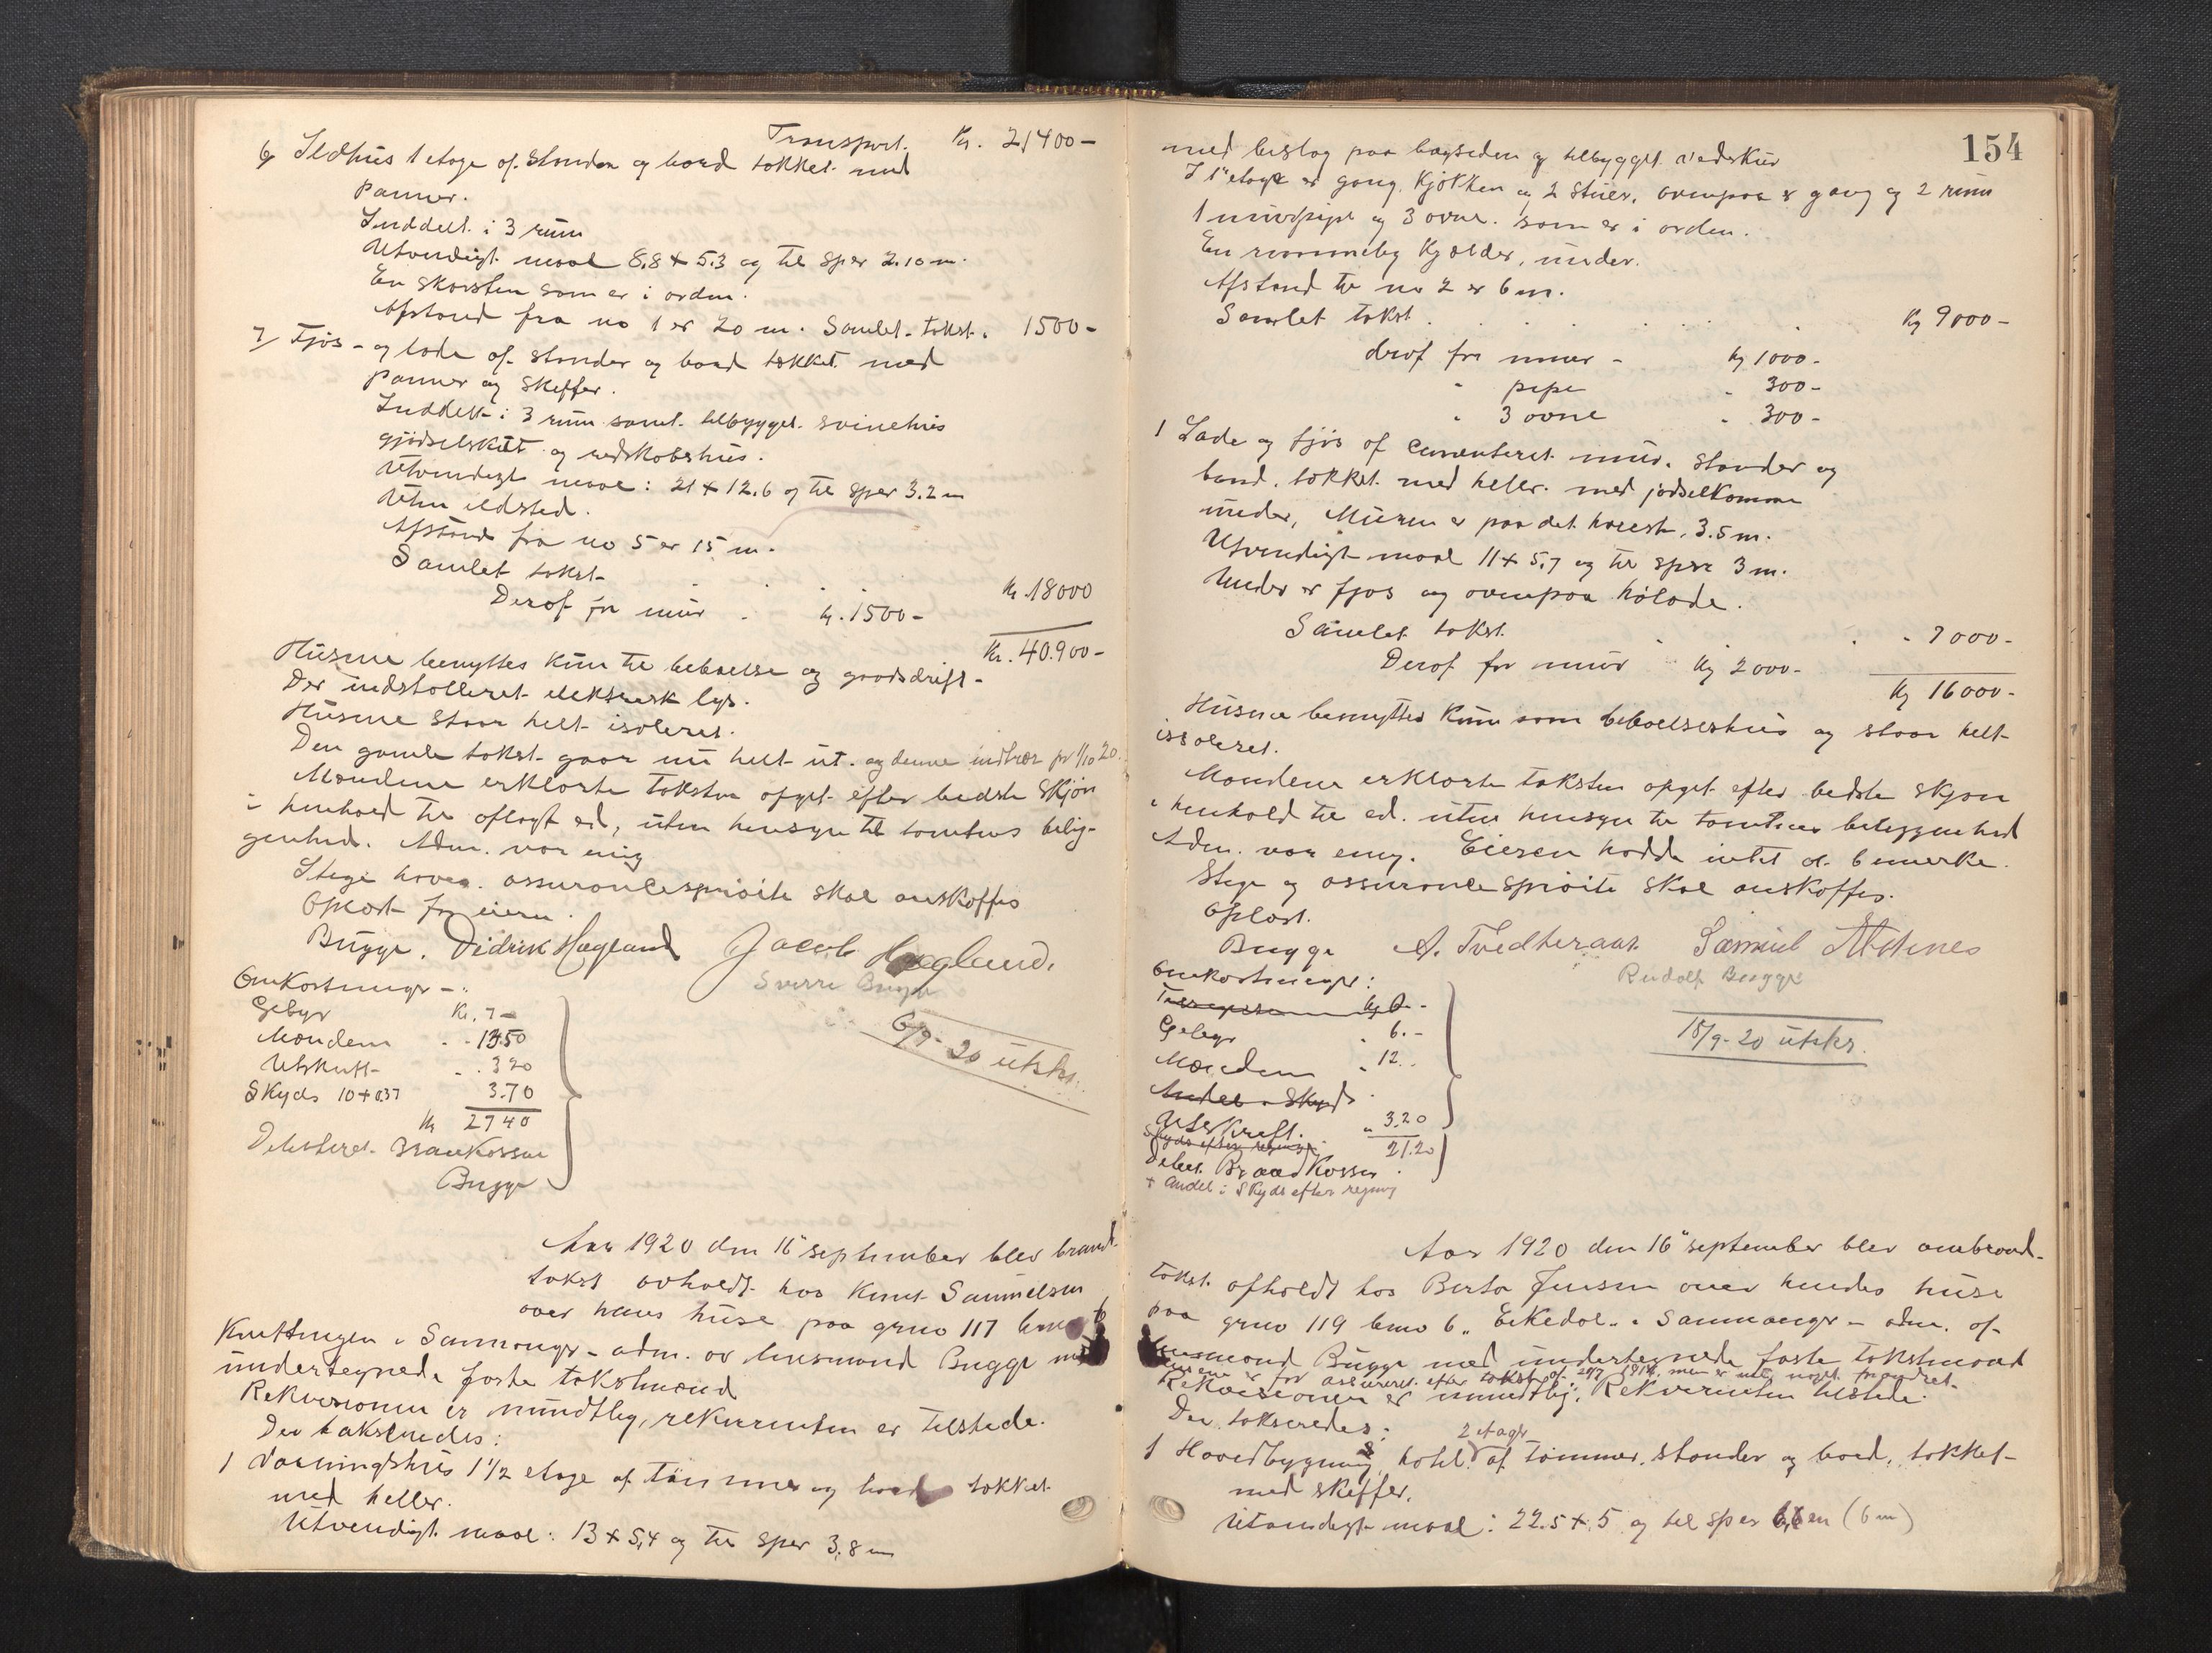 Transport. Kr. 21400-
6/ Ildhus 1 etage af stonder og bord tækket med
panner.
Inddelt i 3 rum
Utvendigt maal 8,8 + 5.3 og til sper 2.10 m.
En skorsten som er i orden.
Afstand fra no 1 er 20 m. Samlet takst. 1500-
7/ Fjøs- og lade af stonder og bord tækket med
panner og skeffer.
Inddelt i 3 rum samt tilbygget svinehus
gjødselskut og redskabshus.
Utvendigt maal: 21 + 12.6 og til sper 3.2 m
Uten ildsted.
Afstand fra no 5 er 15 m.
Samlet takst . . . . Kr. 18000
Derof for mur . kr. 1500-
Kr. 40.900-
Husene benyttes kun til beboelse og gaardsdrift-
Der indstalleret elektrisk lys.
Husene staar helt isoleret.
Den gamle takst gaar nu helt ut. og denne indtrær pr 1/10 20.
Mændene erklærte taksten afgit efter bedste skjøn
i henhold til aflagt ed, uten hensyn til tomtens belig-
genhed. Adm. var enig
Stige haves. assurancesprøite skal anskaffes
Oplæst for eieren.
Bugge. Didrik Hagland Jacob Hagland.
Sverre Bugge
6/9-20 utskr.
Omkostninger -:
Gebyr Kr. 7-
Mændene . . 1350
Utskrift . . 320
Skyds 10+0.37 3.70
Kr 2740
Debiteret Brankassen
Bugge
Aar 1920 den 16" september blev brand-
takst avholdt hos Knut Samuelsen
over hans huse paa grno 117 bno 6
Knuttingen i Samnanger - adm. av lensmand Bugge med
undertegnede faste takstmænd
Rekvisionen er mundtlig, rekvirenten er tilstede.
Der takseredes:
1 Vaaningshus 1 1/2 etage af tømmer og bord tækket
med heller.
Utvendigt maal: 13 + 5,4 og til sper 3,8 m
154
med beslag paa bagsiden og tilbygget vedskur
I 1" etage er gang, kjøkken og 2 stuer, ovenpaa er gang og 2 rum
1 murpipe og 3 ovne. som er i orden.
En rummelig kjælder, under.
Afstand til no 2 er 6 m.
Samlet takst . . . . . . . Kr 9000-
deraf for mur - Kr 1000-
" pipe . 300-
" 3 ovne . 300-
1 Lade og fjøs af cementeret mur. stonder og
bord. tækket med heller. med jødselkomme
under, Muren er paa det høieste 3.5 m.
Utvendigt maal 11 + 5,7 og til sper 3 m.
Under er fjøs og ovenpaa hølade.
Samlet takst . . - 7000-
Derof for mur Kr 2000-
Kr 16000-
Husene benyttes kun som beboelseshus og staar helt
issoleret.
Mændene erklærte taksten afgit efter bedste skjøn
i henhold til ed. uten hensyn til tomtens beliggenhed
Adm. var enig. Eieren hadde intet at bemerke.
Stige og assurancesprøite skal anskaffes.
Oplæst.
Bugge A. Tvedteraas. Samuel
Rudolf Bugge
15/9-20 utskr.
Omkostninger:
Gebyr . 6.-
Mændene . 12..
Andel i Skyds
Utskrift. " 3.20
Skyds efter regning 21.20
Debet. Brandkassen.
+ Andel i Skyds efter regning
Aar 1920 den 16" september blev ombrand-
takst. afholdt hos Berta Jensen over hendes huse
paa grno 119 bno 6 " Eikedal " i Samnanger - adm. af
lensmand Bugge med undertegnede faste takstmænd
Husene er før assureret efter takst af 29/7 1914, men er nu noget forandret.
Rekvisionen er mundtlig. Rekvirenten tilstede.
Der takseredes:
2 etager
1 Hovedbygning, hotel af tømmer, stonder og bord, tækket-
med skeffer.
Utvendigt maal: 22.5 + 5 og til sper 6,6 m (6 m)